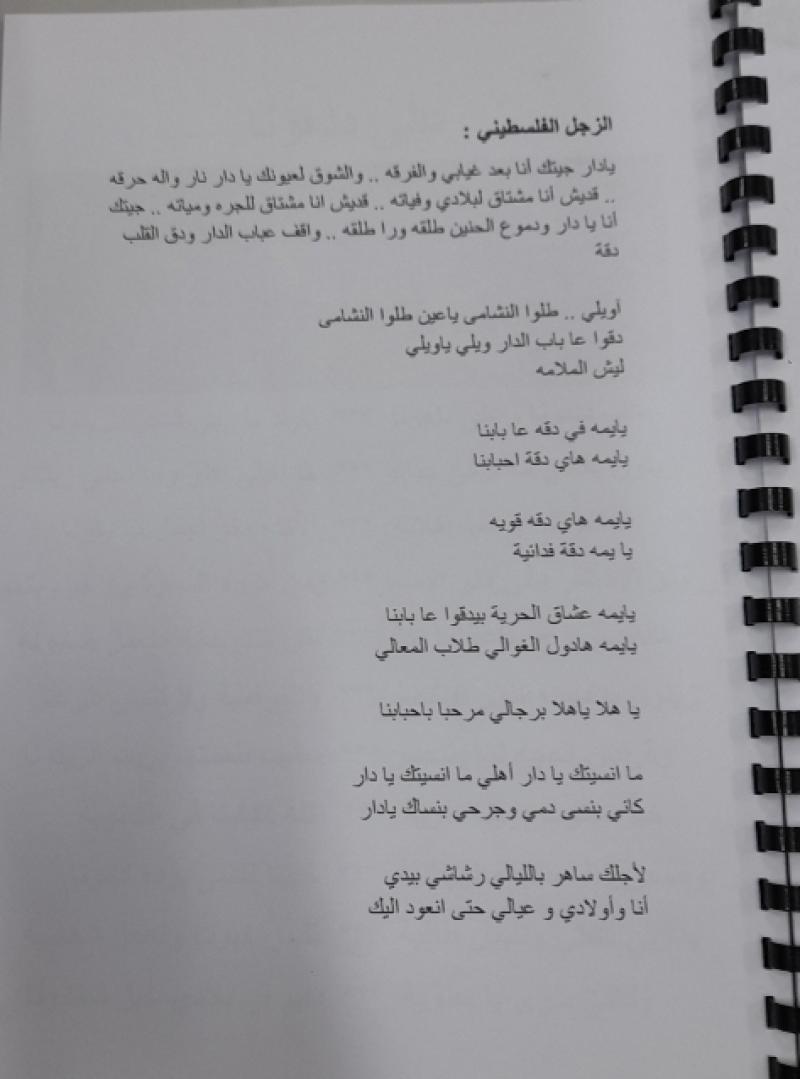 الزجل الفلسطيني :
يادار جيتك أنا بعد غيابي والفرقه .. والشوق لعيونك يا دار نار واله حرقه
.. قديش أنا مشتاق لبلادي وفياته .. قديش انا مشتاق للجره ومياته .. جيتك
أنا يا دار ودموع الحنين طلقه ورا طلقه .. واقف عباب الدار ودق القلب
دقة
أويلي .. طلوا النشامى ياعين طلوا النشامى
دقوا عا باب الدار ويلي ياويلي
ليش الملامه
يايمه في دقه عا بابنا
يايمه هاي دقة احبابنا
يايمه هاي دقه قويه
يا يمه دقة فدائية
يايمه عشاق الحرية بيدقوا عا بابنا
يايمه هادول الغوالي طلاب المعالي
يا هلا ياهلا برجالي مرحبا باحبابنا
ما انسيتك يا دار أهلي ما انسيتك يا دار
كاني بنسى دمي وجرحي بنساك يادار
لأجلك ساهر بالليالي رشاشي بيدي
أنا وأولادي و عيالي حتى انعود اليك